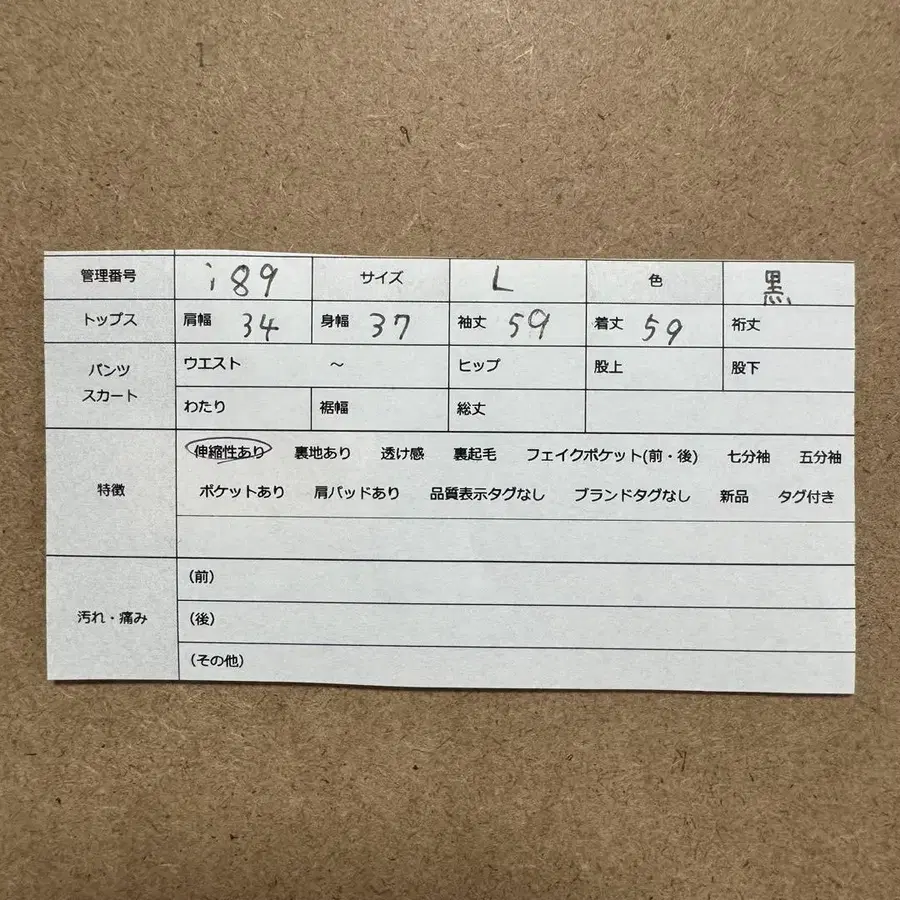 管理番号 i89 サイズ L 色 黒
トップス 肩幅 34 身幅 37 袖丈 59 着丈 59 裄丈
パンツ ウエスト ～ ヒップ 股上 股下
スカート わたり 裾幅 総丈
特徴 伸縮性あり 裏地あり 透け感 裏起毛 フェイクポケット(前・後) 七分袖 五分袖
ポケットあり 肩パッドあり 品質表示タグなし ブランドタグなし 新品 タグ付き
汚れ・痛み (前)
(後)
(その他)